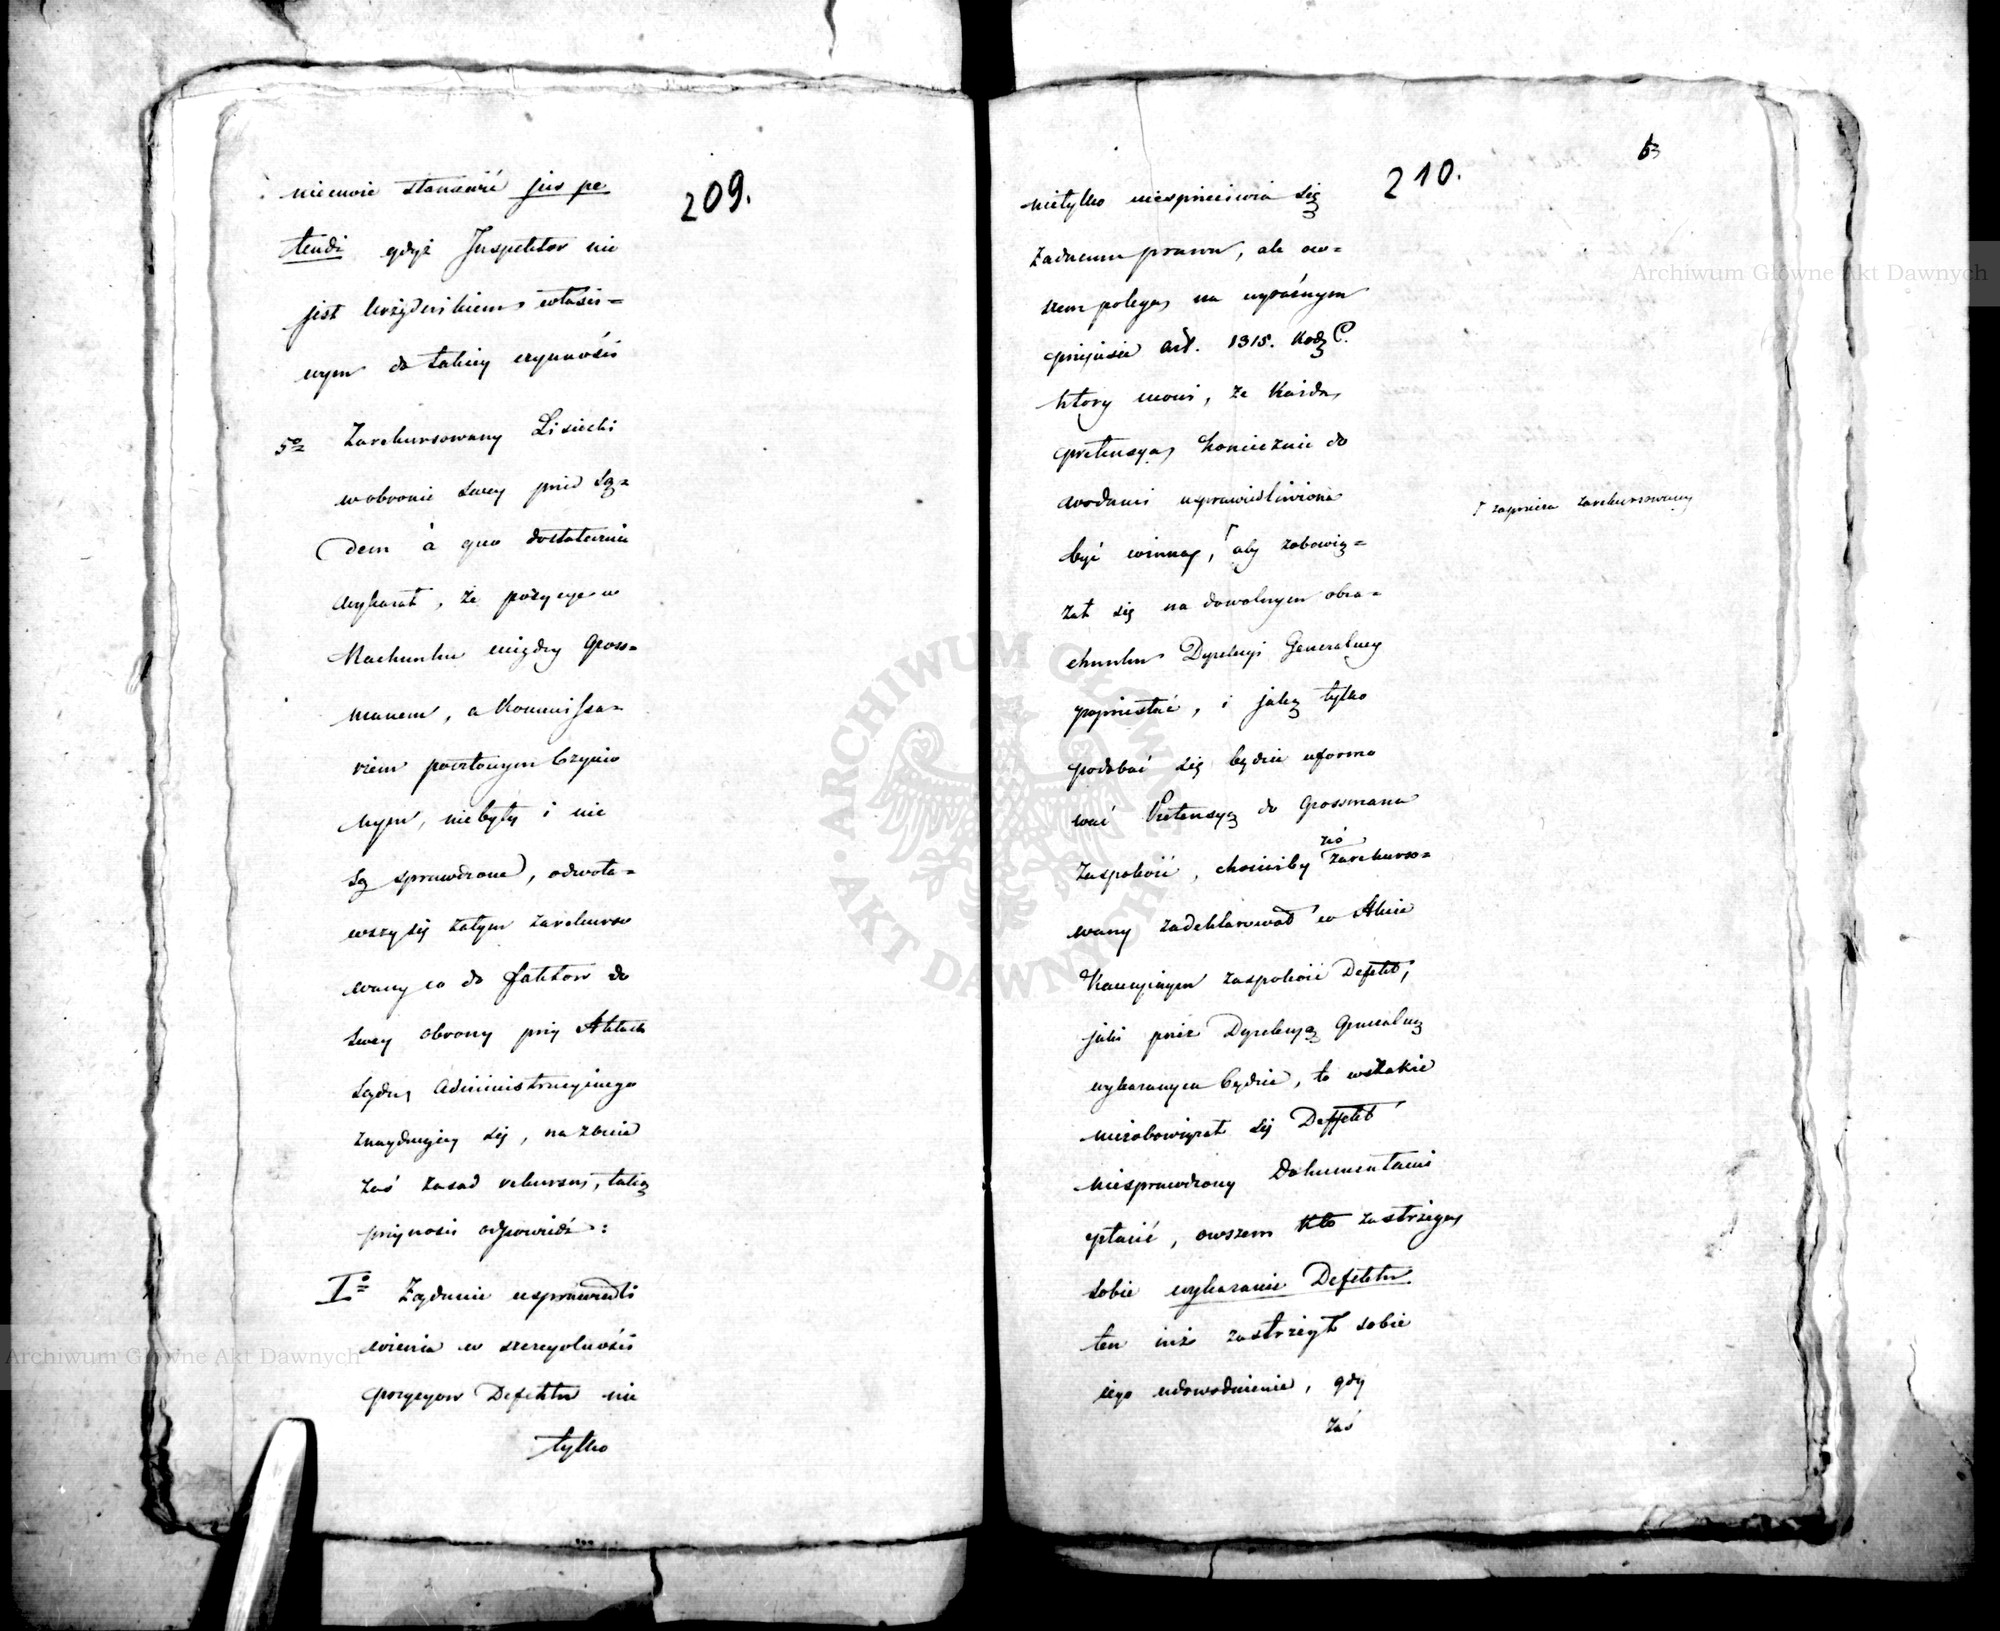 209.
niemoże stanowić jus pe
tendi gdyż Inspektor nie
jest Urzędnikiem właści=
wym do takiey czynności
5o Zarekursowany Lisiecki
w obronie swey przed Są=
dem à quo dostatecznie
wykazał, że pozycye w
Rachunku między Gross=
manem, a Kommissa=
rzem pocztowym
nym, niebyły i nie
są sprawdzone, odwoła=
wszy się zatym zarekurso
wany co do faktow do
swey obrony przy Aktach
Sądu Administracyinego
znayduiącey się, na zbicie
zaś zasad rekursu, taką
przynosi odpowiedź:
Io Żądanie usprawiedli
wienia w szczegolności
pozycyow Defektu nie
tylko
210.
63
nietylko niesprzeciwia się
żadnemu prawu, ale ow=
szem polega na wyraźnym
przepisie art. 1315. Kod C.
ktory mowi, że Każda
pretensya koniecznie do
wodami usprawiedliwiona
być winna, Γ aby zobowią=
Γ zaprzecza zarekursowany
zał się na dowolnym obra=
chunku Dyrekcyi Generalney
poprzestać, i jaką tylko
podobać się będzie uformo
wać Pretensyą do Grossmana
zaspokoić, chociżby zaś zarekurso=
wany zadeklarował w Akcie
Kaucyinym zaspokoić Defekt,
jaki przez Dyrekcyą Generalną
wykazanym będzie, to wszakże
niezobowiązał się Deffekt
niesprawdzony Dokumentami
płacić, owszem kto zastrzega
sobie wykazanie Defektu
ten iuż zastrzegł sobie
iego udowodnienie, gdy
zaś
Archiwum Główne Akt Dawnych
Archiwum Główne Akt Dawnych
ARCHIWUM GŁÓWNE AKT DAWNYCH